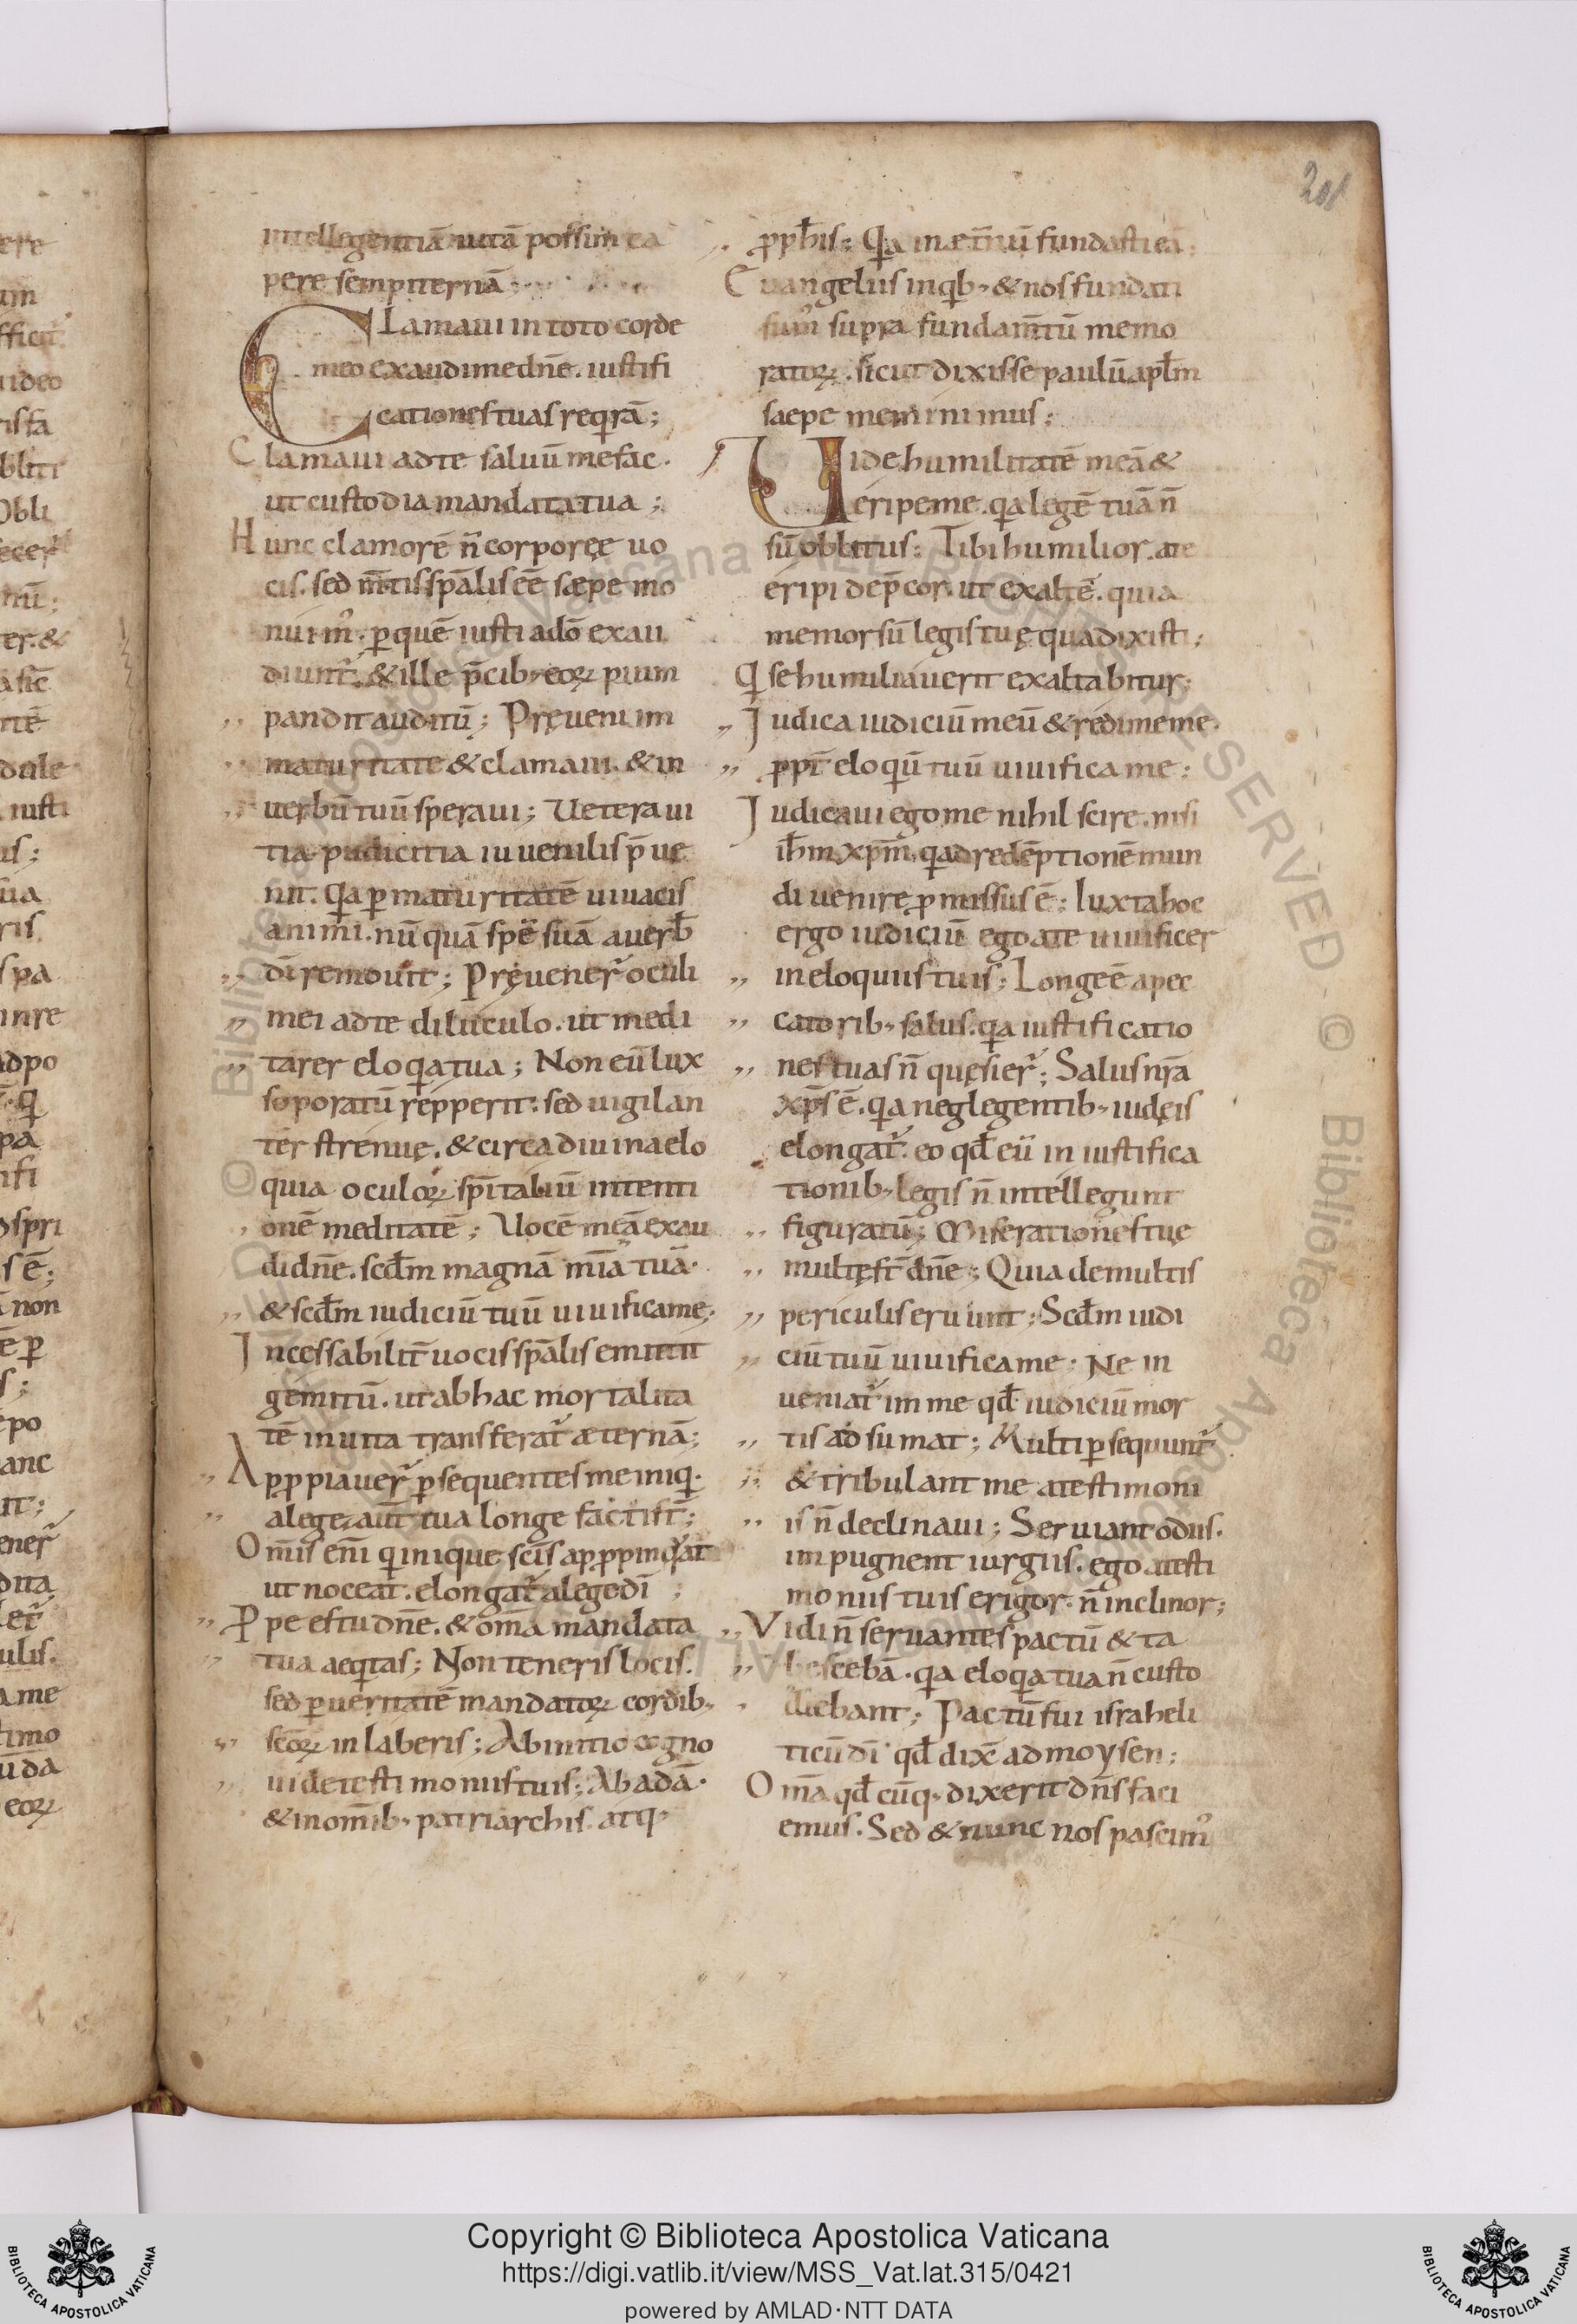 201
intellegentiā uitā possim ca
pere sempiternā
CLamaui in toto corde
meo exaudi me dn̄e. iustifi
cationes tuas reqrā;
Clamaui ad te saluū me fac.
ut custodia mandata tua;
Hunc clamorē n̄ corporęę uo
cis. sed m̄tis sp̄alis eē sæpe mo
nuim᾽. ꝑ quē iusti ad dō exau
diunt᾽. & ille p̄cib; eoꝝ pium
pandit auditū; Pręueni im
maturitate & clamaui. & in
uerbū tuū speraui; Uetera ui
tia pudicitia iuuenilis p̄ue
nit. qa ꝑ maturitatē uiuacis
animi. nū quā spē suā a uerb̄
dī remouit; Pręuener᾽ oculi
mei ad te diluculo. ut medi
tarer eloqa tua; Non eū lux
soporatū repperit. sed uigilan
ter strenuę. & circa diuina elo
quia oculoꝝ sp̄italiū intenti
onē meditatē; Uocē meā exau
di dn̄e. scd̄m magnā mīā tuā.
& scd̄m iudiciū tuū uiuifica me;
Incessabilit̄ uocis sp̄alis emittit
gemitū. ut ab hac mortalita
tē in uita transferat᾽ æternā;
Apꝓpiauer᾽ ꝑsequentes me iniq.
a lege aut̄ tua longe facti st̄;
Om̄is eni qi inique scis apꝓpinqat
ut noceat. elongat᾽ a lege dī;
Ꝓpe es tu dn̄e. & om̄a mandata
tua aeqtas; Non teneris locis.
sed ꝑ ueritatē mandatoꝝ cordib;
sc̄oꝝ inlaberis; Ab initio cogno
ui de testimoniis tuis; Ab adā.
& in om̄ib; patriarchis. atq;
ꝓph̄is; Qa in æt̄nū fundasti ea;
Euangeliis in qb; & nos fundati
sum᾽ supra fundam̄tū memo
ratoꝝ. sicut dixisse paulū apl̄m
saepe meminimus;
Uide humilitatē meā &
eripe me. qa legē tuā n̄
sū oblitus; Tibi humilior. a te
eripi dep̄cor. ut exaltē. quia
memor sū legis tuę qua dixisti;
Qi se humiliauerit exaltabitur;
Iudica iudiciū meū & redime me.
ꝓpt̄ eloqū tuū uiuifica me;
Iudicaui ego me nihil scire. nisi
ih̄m xp̄m. qi ad redēptionē mun
di uenire ꝓmissus ē; Iuxta hoc
ergo iudiciū ego a te uiuificer
in eloquiis tuis; Longe ē a pec
catorib; salus. qa iustificatio
nes tuas n̄ quęsier᾽; Salus nr̄a
xp̄s ē. qa neglegentib; iudęis
elongat᾽. eo qd̄ eū in iustifica
tionib; legis n̄ intellegunt
figuratū; Miserationes tuę
multę st̄ dn̄e; Quia de multis
periculis eruunt; Scd̄m iudi
ciū tuū uiuifica me; Ne in
ueniat᾽ im me qd̄ iudiciū mor
tis adsumat; Multi ꝑsequunt᾽
& tribulant me a testimoni
is n̄ declinaui; Seruiant odiis.
impugnent iurgiis. ego a testi
moniis tuis erigor. n̄ inclinor;
Vidi n̄ seruantes pactū & ta
bescebā. qa eloqa tua n̄ custo
diebant; Pactū fui israheli
ticū dī qd̄ dix̄ ad moysen;
Om̄a qd̄cūq; dixerit dn̄s faci
emus. Sed & nunc nos pascim᾽
Copyright © Biblioteca Apostolica Vaticana
https://digi.vatlib.it/view/MSS_Vat.lat.315/0421
powered by AMLAD·NTT DATA
BIBLIOTECA APOSTOLICA VATICANA
BIBLIOTECA APOSTOLICA VATICANA